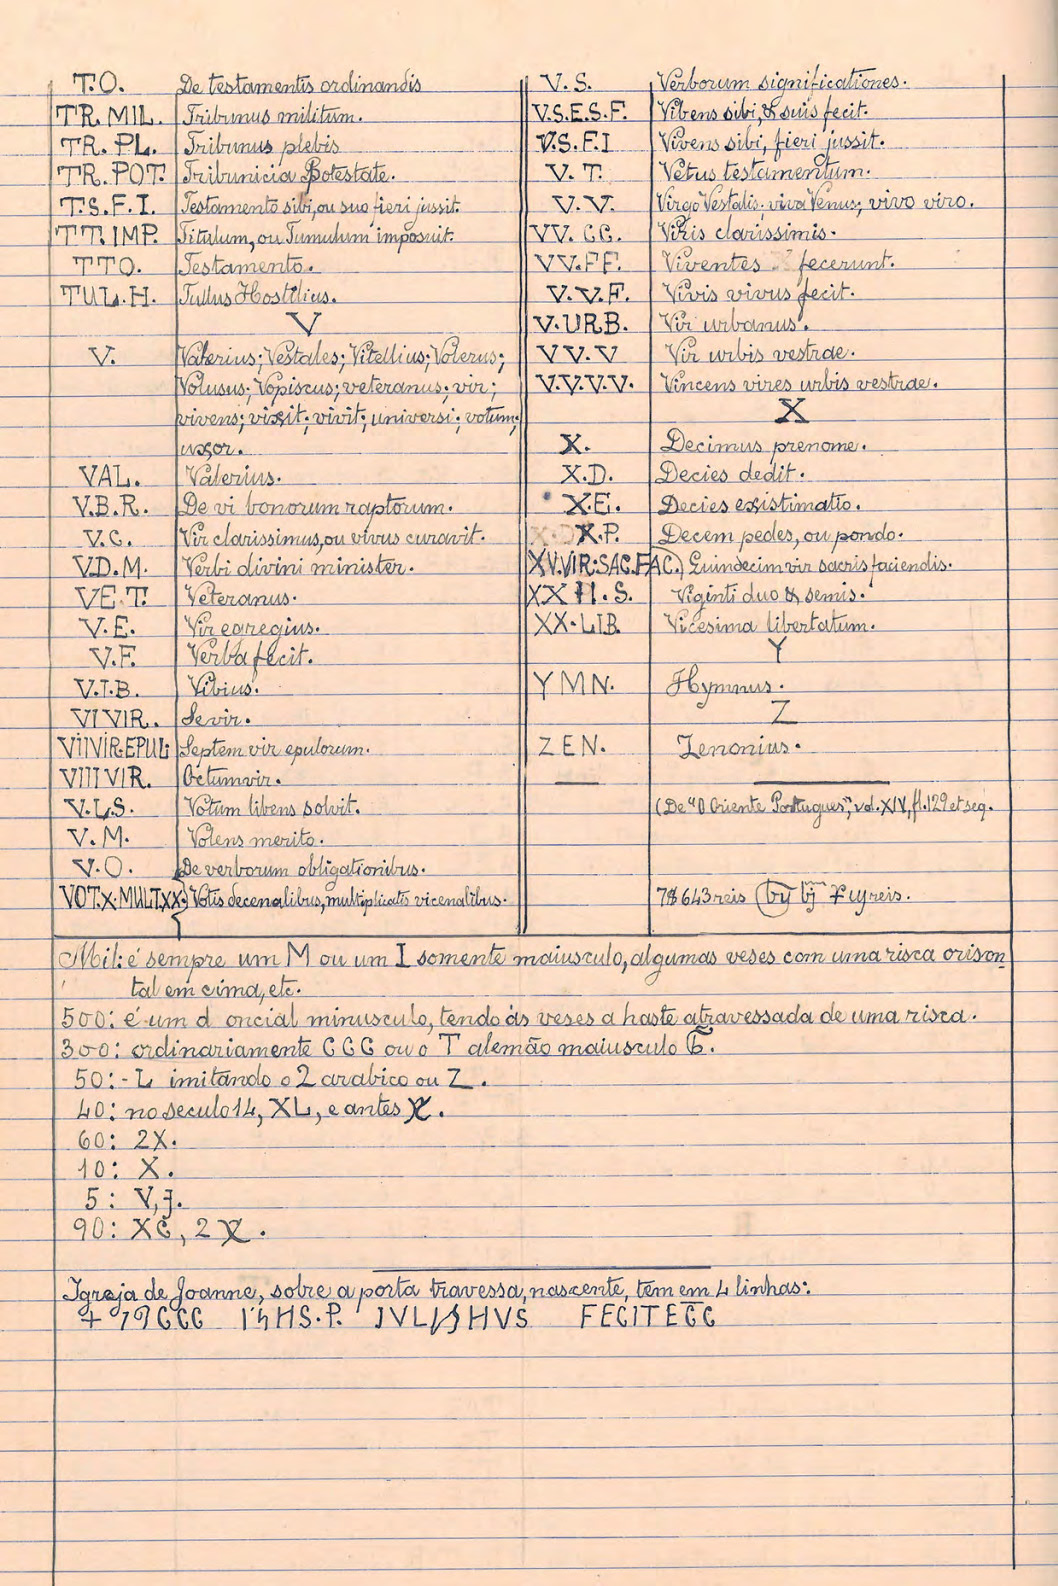 T.O. De testamentis ordinandis
TR. MIL. Tribunus militum.
TR. PL. Tribunus plebis
TR. POT. Tribunicia Potestate.
T.S.F.I. Testamento sibi, ou suo fieri jussit.
TT. IMP. Titulum, ou Tumulum imposuit.
TTO. Testamento.
TUL.H. Tullus Hostilius.
V
V. Valerius; Vestales; Vitellius; Volerus;
Volusus; Vopiscus; veteranus; vir;
vivens; vixit; vivit; universi; votum;
uxor.
VAL. Valerius.
V.B.R. De vi bonorum raptorum.
V.C. Vir clarissimus, ou vivus curavit.
V.D.M. Verbi divini minister.
VE.T. Veteranus.
V.E. Vir egregius.
V.F. Verba fecit.
V.I.B. Vibius.
VI VIR. Sevir.
VII VIR. EPUL. Septem vir epulorum.
VIII VIR. Octumvir.
V.L.S. Votum libens solvit.
V.M. Volens merito.
V.O. De verborum obligationibus.
VOT.X.MULT.XX.) Votis decenalibus, multiplicatis vicenalibus.
V.S. Verborum significationes.
V.S.E.S.F. Vivens sibi, & suis fecit.
V.S.F.I Vivens sibi, fieri jussit.
V.T. Vetus testamentum.
V.V. Virgo Vestalis; viva Venus; vivo viro.
VV. CC. Viris clarissimis.
VV.FF. Viventes fecerunt.
V.V.F. Vivis vivus fecit.
V.URB. Vir urbanus.
VV.V Vir urbis vestrae.
V.V.V.V. Vincens vires urbis vestrae.
X
X. Decimus prenome.
X.D. Decies dedit.
X.E. Decies existimatio.
X.P. Decem pedes, ou pondo.
XV.VIR.SAC.FAC.) Quindecim vir sacris faciendis.
XX II.S. Viginti duo & semis.
XX.LIB. Vicesima libertatum.
Y
YMN. Hymnus.
Z
ZEN. Zenonius.
(De "O Oriente Portugues", vol. XIV, fl. 129 et seq.
7$643 reis
Mil: é sempre um M ou um I somente maiusculo, algumas veses com uma risca orison
tal em cima, etc.
500: é um d oncial minusculo, tendo ás veses a haste atravessada de uma risca.
300: ordinariamente CCC ou o T alemão maiusculo
50: - L imitando o 2 arabico ou Z.
40: no seculo 14, XL, e antes X.
60: 2X.
10: X.
5: V, J.
90: XC, 2 X.
Igreja de Joanne, sobre a porta travessa, nascente, tem em 4 linhas:
HS.P. HVS FECIT